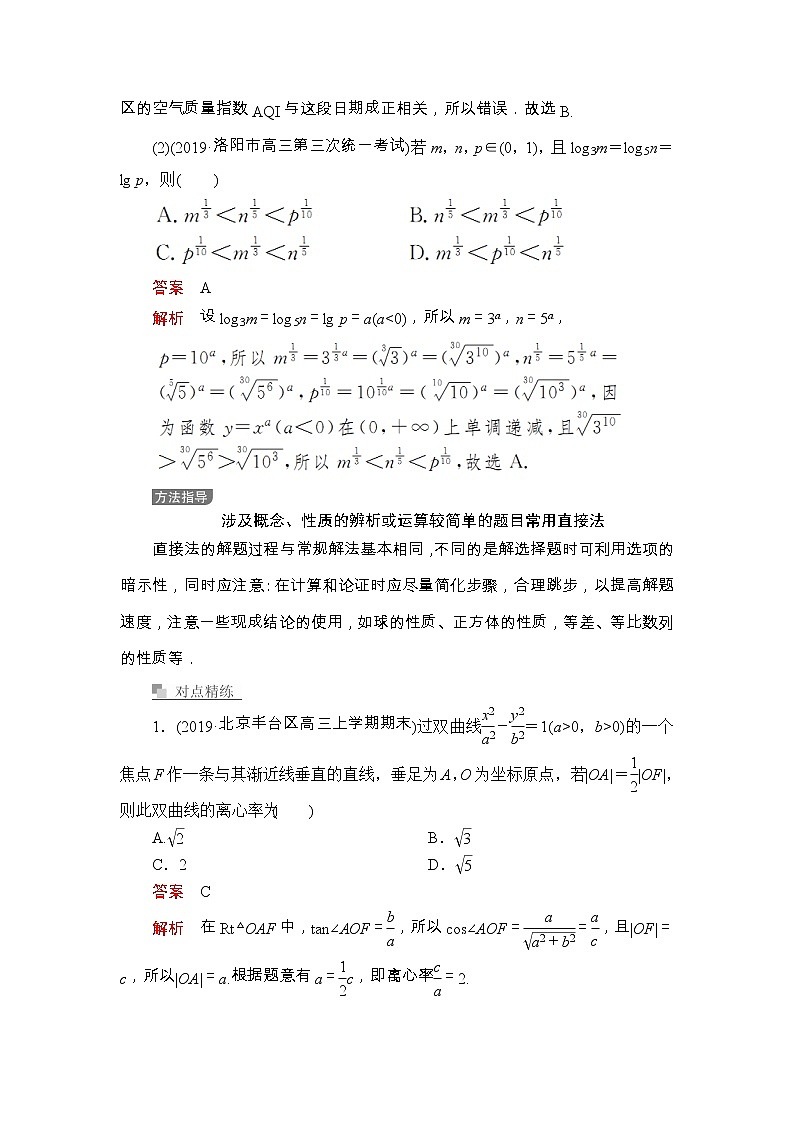 区的空气质量指数 AQI 与这段日期成正相关，所以错误．故选 B.
(2)(2019·洛阳市高三第三次统一考试)若 m，n，p∈(0，1)，且 log₃m＝log₅n＝
lg p，则(　　)
A. m^{1/3}＜n^{1/5}＜p^{1/10}　　B. n^{1/5}＜m^{1/3}＜p^{1/10}
C. p^{1/10}＜m^{1/3}＜n^{1/5}　　D. m^{1/3}＜p^{1/10}＜n^{1/5}
答案　A
解析　设 log₃m＝log₅n＝lg p＝a(a<0)，所以 m＝3ᵃ，n＝5ᵃ，
p＝10ᵃ,所以 m^{1/3}＝3^{1/3 a}＝(∛3)ᵃ＝(\sqrt[30]{3^{10}})ᵃ,n^{1/5}＝5^{1/5 a}＝
(\sqrt[5]{5})ᵃ＝(\sqrt[30]{5^6})ᵃ,p^{1/10}＝10^{1/10 a}＝(\sqrt[10]{10})ᵃ＝(\sqrt[30]{10^3})ᵃ,因
为函数 y＝xᵃ(a＜0)在(0,＋∞)上单调递减,且\sqrt[30]{3^{10}}
＞\sqrt[30]{5^6}＞\sqrt[30]{10^3},所以 m^{1/3}＜n^{1/5}＜p^{1/10},故选 A.
方法指导
涉及概念、性质的辨析或运算较简单的题目常用直接法
直接法的解题过程与常规解法基本相同，不同的是解选择题时可利用选项的
暗示性，同时应注意：在计算和论证时应尽量简化步骤，合理跳步，以提高解题
速度，注意一些现成结论的使用，如球的性质、正方体的性质，等差、等比数列
的性质等．
对点精练
1．(2019·北京丰台区高三上学期期末)过双曲线x²/a²－y²/b²＝1(a>0，b>0)的一个
焦点 F 作一条与其渐近线垂直的直线，垂足为 A，O 为坐标原点，若|OA|＝1/2|OF|，
则此双曲线的离心率为(　　)
A.√2　　B．√3
C．2　　D．√5
答案　C
解析　在 Rt△OAF 中，tan∠AOF＝b/a，所以 cos∠AOF＝a/√(a²＋b²)＝a/c，且|OF|＝
c，所以|OA|＝a.根据题意有 a＝1/2c，即离心率c/a＝2.